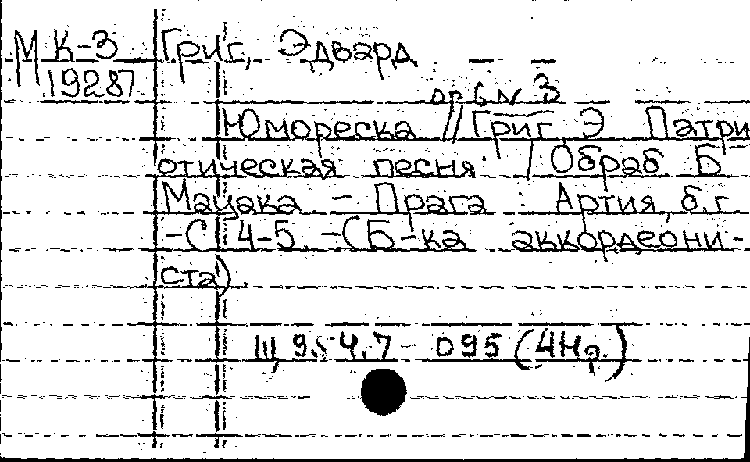 МК-3 Григ, Эдвард
19287
ор 6 № 3
Юмореска // Григ Э Патри
отическая песня / Обраб Б
Мацака - Прага : Артия, б.г
-С 4-5. -(Б-ка аккордеони-
ста).
Ш 9.5.4.7 - 095 (4Нр.)